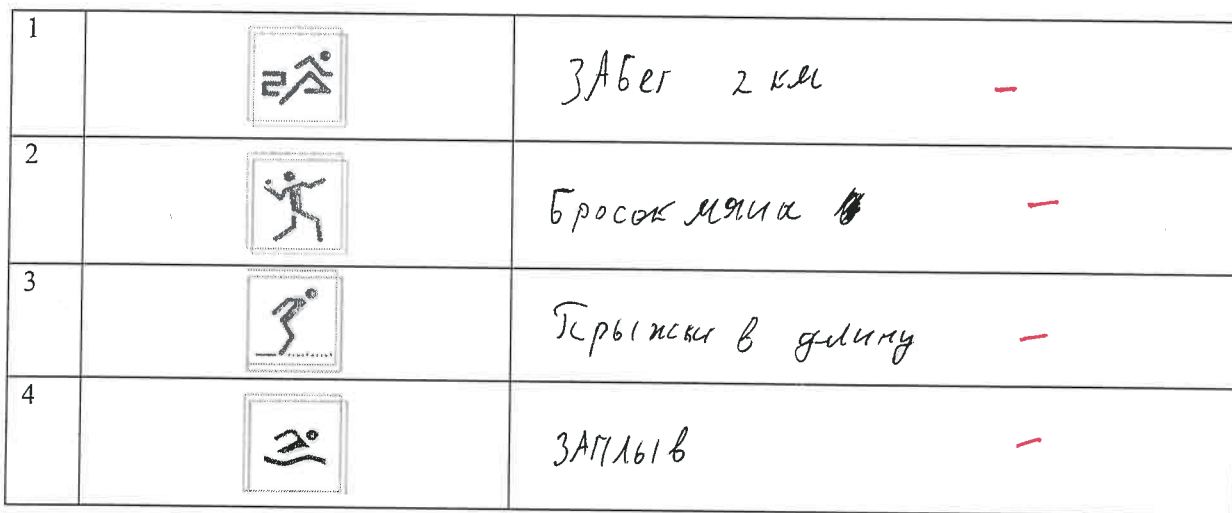 1
ЗАБег 2 км
2
Бросок мяча
3
Прыжки в длину
4
ЗАПлыв